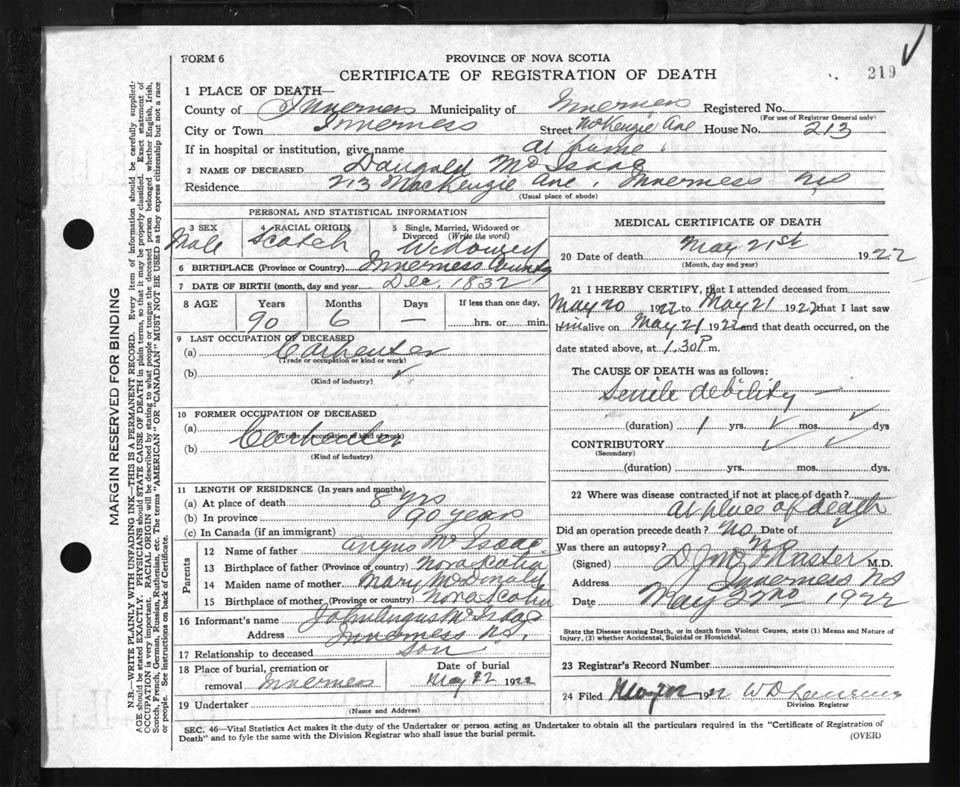 FORM 6
PROVINCE OF NOVA SCOTIA
CERTIFICATE OF REGISTRATION OF DEATH
219
1 PLACE OF DEATH—
County of Inverness Municipality of Inverness Registered No.
(For use of Registrar General only)
City or Town Inverness Street McKenzie Ave House No. 213
If in hospital or institution, give name at home
2 NAME OF DECEASED Dougald McIsaac
Residence 213 MacKenzie Ave, Inverness NS
(Usual place of abode)
PERSONAL AND STATISTICAL INFORMATION
3 SEX 4 RACIAL ORIGIN 5 Single, Married, Widowed or Divorced (Write the word)
Male Scotch Widowed
6 BIRTHPLACE (Province or Country) Inverness County
7 DATE OF BIRTH (month, day and year) Dec. 1832
8 AGE Years Months Days If less than one day,
90 6 — hrs. or min.
9 LAST OCCUPATION OF DECEASED
(a) Carpenter
(Trade or occupation or kind or work)
(b)
(Kind of industry)
10 FORMER OCCUPATION OF DECEASED
(a)
(Trade or occupation of kind of work)
(b) Carpenter
(Kind of industry)
11 LENGTH OF RESIDENCE (In years and months)
(a) At place of death 8 yrs
(b) In province 90 years
(c) In Canada (if an immigrant)
Parents
12 Name of father Angus McIsaac
13 Birthplace of father (Province or country) Nova Scotia
14 Maiden name of mother Mary McDonald
15 Birthplace of mother (Province or country) Nova Scotia
16 Informant's name John Angus McIsaac
Address Inverness NS.
17 Relationship to deceased son
18 Place of burial, cremation or removal Inverness
Date of burial May 22 1922
19 Undertaker
(Name and Address)
MEDICAL CERTIFICATE OF DEATH
20 Date of death May 21st 1922
(Month, day and year)
21 I HEREBY CERTIFY, that I attended deceased from
May 20 1922 to May 21 1922 that I last saw
him alive on May 21 1922 and that death occurred, on the
date stated above, at 1.30 P m.
The CAUSE OF DEATH was as follows:
Senile debility —
(duration) 1 yrs. mos. dys
CONTRIBUTORY
(Secondary)
(duration) yrs. mos. dys.
22 Where was disease contracted if not at place of death?
at place of death
Did an operation precede death? No Date of
Was there an autopsy? No
(Signed) M.D.
Address Inverness NS
Date May 22nd 1922
State the Disease causing Death, or in death from Violent Causes, state (1) Means and Nature of
Injury, (2) whether Accidental, Suicidal or Homicidal.
23 Registrar's Record Number
24 Filed May 22 1922 W D
Division Registrar
SEC. 46—Vital Statistics Act makes it the duty of the Undertaker or person acting as Undertaker to obtain all the particulars required in the "Certificate of Registration of
Death" and to fyle the same with the Division Registrar who shall issue the burial permit.
(OVER)
MARGIN RESERVED FOR BINDING
N.B.—WRITE PLAINLY WITH UNFADING INK—THIS IS A PERMANENT RECORD. Every item of information should be carefully supplied:
AGE should be stated EXACTLY. PHYSICIANS should STATE CAUSE OF DEATH in plain terms, so that it may be properly classified. Exact statement of
OCCUPATION is very important. RACIAL ORIGIN will be described by stating to what people or tongue the deceased person belonged whether English, Irish,
Scotch, French, German, Russian, Ruthenian, etc. The terms "AMERICAN" OR "CANADIAN" MUST NOT BE USED as they express citizenship but not a race
or people. See instructions on back of Certificate.